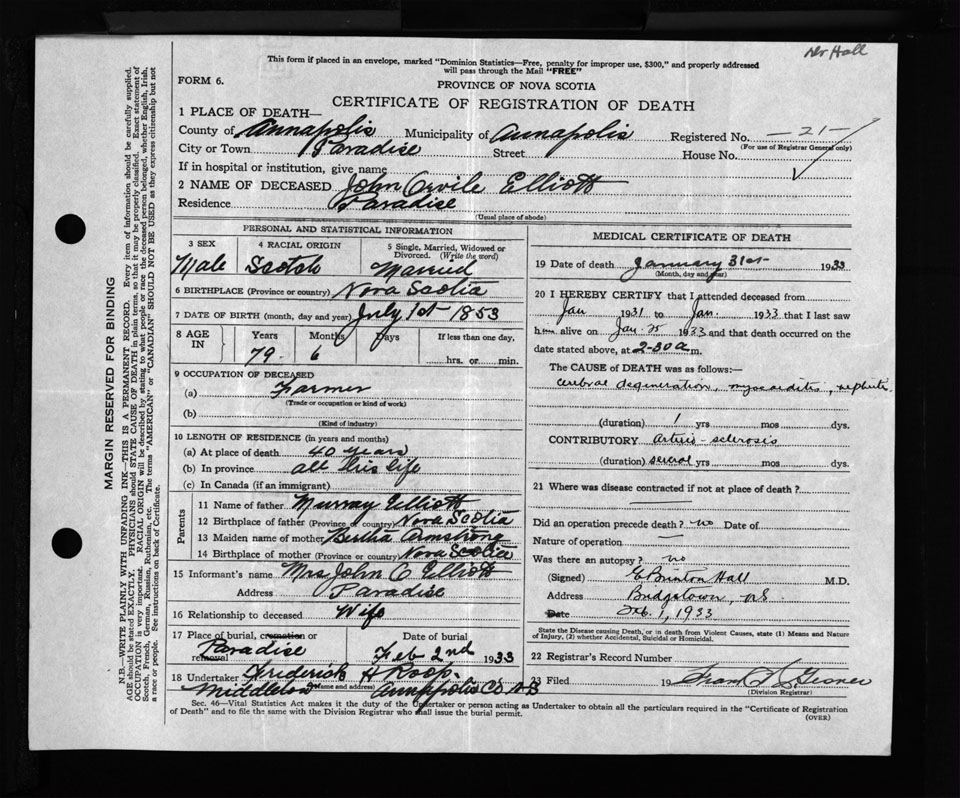 Dr Hall
This form if placed in an envelope, marked "Dominion Statistics—Free, penalty for improper use, $300," and properly addressed
will pass through the Mail "FREE"
FORM 6.
PROVINCE OF NOVA SCOTIA
CERTIFICATE OF REGISTRATION OF DEATH
1 PLACE OF DEATH—
County of Annapolis Municipality of Annapolis Registered No. —21—
(For use of Registrar General only)
City or Town Paradise Street House No.
If in hospital or institution, give name
2 NAME OF DECEASED John Orvile Elliott
Residence Paradise
(Usual place of abode)
PERSONAL AND STATISTICAL INFORMATION
3 SEX 4 RACIAL ORIGIN 5 Single, Married, Widowed or
Divorced. (Write the word)
Male Scotch Married
6 BIRTHPLACE (Province or country) Nova Scotia
7 DATE OF BIRTH (month, day and year) July 1st 1853
8 AGE IN Years Months Days If less than one day,
79 6 hrs. or min.
9 OCCUPATION OF DECEASED
(a) Farmer
(Trade or occupation or kind of work)
(b)
(Kind of industry)
10 LENGTH OF RESIDENCE (in years and months)
(a) At place of death 40 years
(b) In province all his life
(c) In Canada (if an immigrant)
Parents
11 Name of father Murray Elliott
12 Birthplace of father (Province or country) Nova Scotia
13 Maiden name of mother Bertha Armstrong
14 Birthplace of mother (Province or country) Nova Scotia
15 Informant's name Mrs John O Elliott
Address Paradise
16 Relationship to deceased Wife
17 Place of burial, cremation or Date of burial
removal Paradise Feb 2nd 1933
18 Undertaker Frederick H Roop
(Name and address)
Middleton Annapolis Co N S
MEDICAL CERTIFICATE OF DEATH
19 Date of death January 31st 1933
(Month, day and year)
20 I HEREBY CERTIFY that I attended deceased from
Jan 1931 to Jan. 1933 that I last saw
him alive on Jan 25 1933 and that death occurred on the
date stated above, at 2-30 a m.
The CAUSE of DEATH was as follows:—
cerebral degeneration, myocarditis, nephritis
(duration) 1 yrs mos dys.
CONTRIBUTORY arterio-sclerosis
(duration) several yrs mos dys.
21 Where was disease contracted if not at place of death?
Did an operation precede death? no Date of
Nature of operation —
Was there an autopsy? no
(Signed) E Brinton Hall M.D.
Address Bridgetown, N.S.
Date Feb. 1, 1933
State the Disease causing Death, or in death from Violent Causes, state (1) Means and Nature
of Injury, (2) whether Accidental, Suicidal or Homicidal.
22 Registrar's Record Number
23 Filed 19
(Division Registrar)
Sec. 46—Vital Statistics Act makes it the duty of the Undertaker or person acting as Undertaker to obtain all the particulars required in the "Certificate of Registration
of Death" and to file the same with the Division Registrar who shall issue the burial permit.
(OVER)
MARGIN RESERVED FOR BINDING
N.B.—WRITE PLAINLY WITH UNFADING INK—THIS IS A PERMANENT RECORD. Every item of information should be carefully supplied.
AGE should be stated EXACTLY. PHYSICIANS should STATE CAUSE OF DEATH in plain terms, so that it may be properly classified. Exact statement of
OCCUPATION is very important. RACIAL ORIGIN will be described by stating to what people or race the deceased person belonged, whether English, Irish,
Scotch, French, German, Russian, Ruthenian, etc. The terms "AMERICAN" or "CANADIAN" SHOULD NOT BE USED as they express citizenship but not
a race or people. See instructions on back of Certificate.